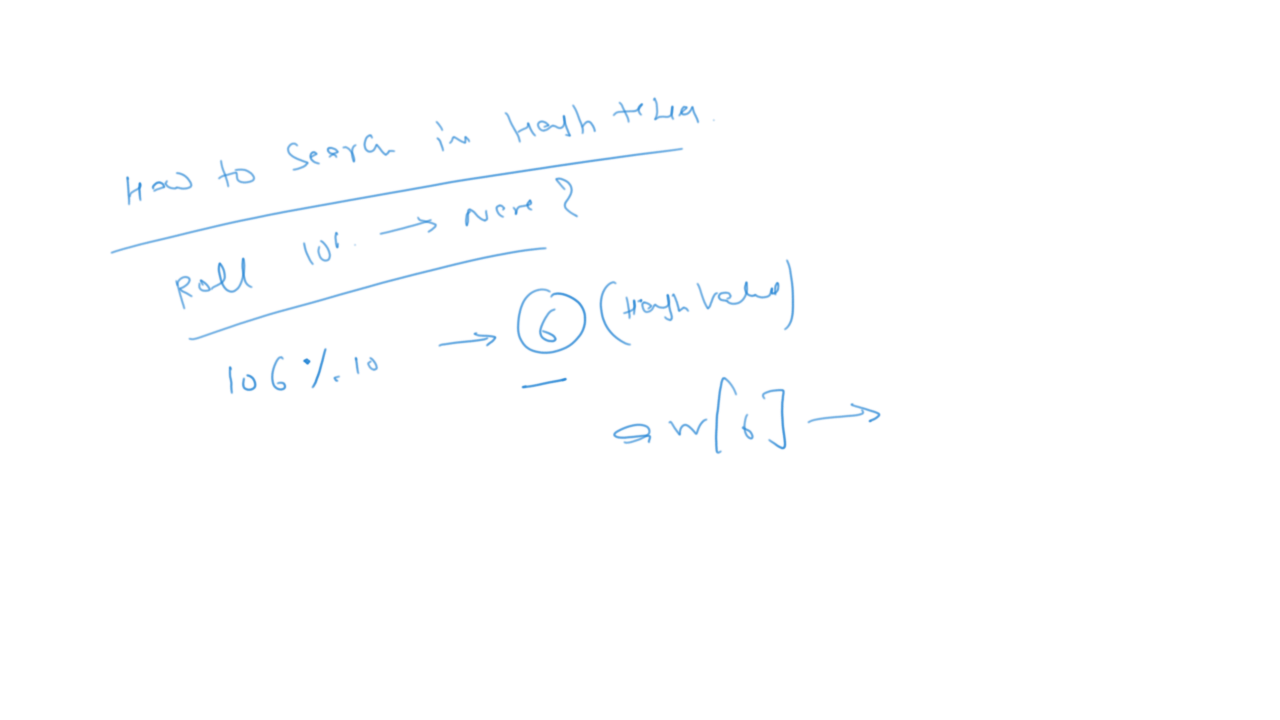 How to Search in Hash
Roll 106 → Name ?
106 % 10 → 6 (Hash Value)
arr[6] →